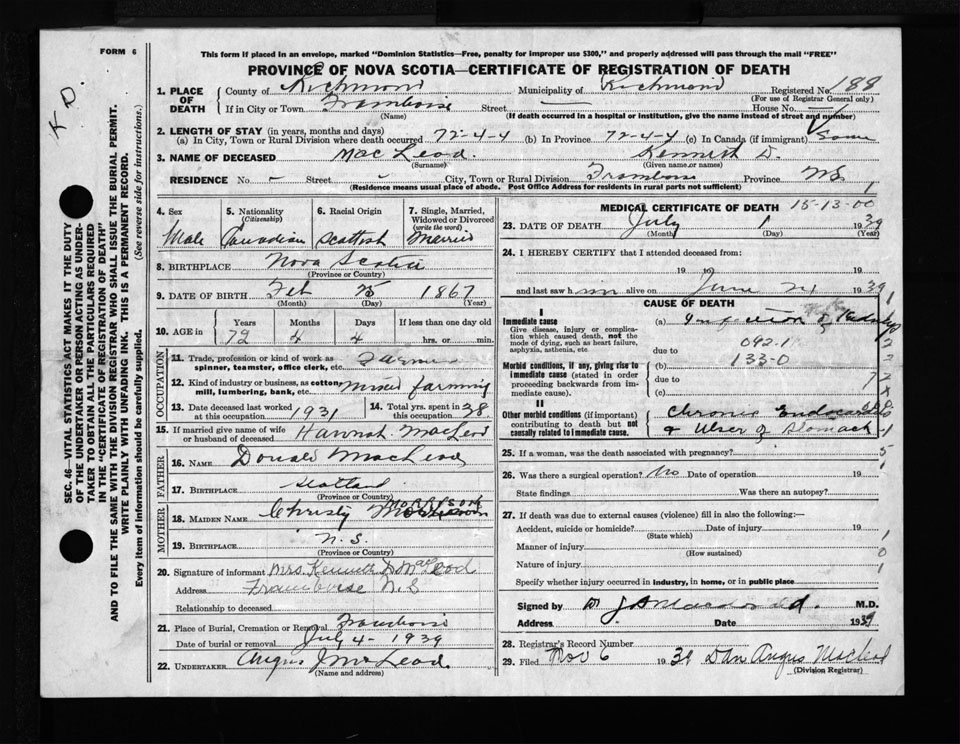 FORM 6
This form if placed in an envelope, marked "Dominion Statistics—Free, penalty for improper use $300," and properly addressed will pass through the mail "FREE"
PROVINCE OF NOVA SCOTIA—CERTIFICATE OF REGISTRATION OF DEATH
K D.
SEC. 46—VITAL STATISTICS ACT MAKES IT THE DUTY
OF THE UNDERTAKER OR PERSON ACTING AS UNDER-
TAKER TO OBTAIN ALL THE PARTICULARS REQUIRED
IN THE "CERTIFICATE OF REGISTRATION OF DEATH"
AND TO FILE THE SAME WITH THE DIVISION REGISTRAR WHO SHALL ISSUE THE BURIAL PERMIT.
WRITE PLAINLY WITH UNFADING INK. THIS IS A PERMANENT RECORD.
Every item of information should be carefully supplied. (See reverse side for instructions.)
1. PLACE OF DEATH County of Richmond Municipality of Richmond Registered No. 188
(For use of Registrar General only)
If in City or Town Framboise Street — House No.
(Name) (If death occurred in a hospital or institution, give the name instead of street and number)
2. LENGTH OF STAY (in years, months and days)
(a) In City, Town or Rural Division where death occurred 72-4-4 (b) In Province 72-4-4 (c) In Canada (if immigrant) Same
3. NAME OF DECEASED MacLeod. Kenneth D.
(Surname) (Given name or names)
RESIDENCE No. - Street - City, Town or Rural Division Framboise Province N.S. 1
(Residence means usual place of abode. Post Office Address for residents in rural parts not sufficient)
4. Sex Male
5. Nationality (Citizenship) Canadian
6. Racial Origin Scottish
7. Single, Married, Widowed or Divorced (write the word) Married
8. BIRTHPLACE Nova Scotia
(Province or Country)
9. DATE OF BIRTH Feb 25 1867
(Month) (Day) (Year)
10. AGE in Years Months Days If less than one day old
72 4 4 hrs. or min.
OCCUPATION
11. Trade, profession or kind of work as spinner, teamster, office clerk, etc. Farmer
12. Kind of industry or business, as cotton mill, lumbering, bank, etc. mixed farming
13. Date deceased last worked at this occupation 1931
14. Total yrs. spent in this occupation 38
15. If married give name of wife or husband of deceased Hannah MacLeod
FATHER
16. NAME Donald MacLeod
17. BIRTHPLACE Scotland
(Province or Country)
MOTHER
18. MAIDEN NAME Christy Morrison
19. BIRTHPLACE N.S.
(Province or Country)
20. Signature of informant Mrs. Kenneth D MacLeod
Address Framboise N.S
Relationship to deceased
21. Place of Burial, Cremation or Removal Framboise
Date of burial or removal July 4 - 1939
22. UNDERTAKER Angus J McLeod
(Name and address)
MEDICAL CERTIFICATE OF DEATH 15-13-00
23. DATE OF DEATH July 1 1939
(Month) (Day) (Year)
24. I HEREBY CERTIFY that I attended deceased from:
19 to 19
and last saw him alive on June 1939
CAUSE OF DEATH
I
Immediate cause
Give disease, injury or complication which caused death, not the mode of dying, such as heart failure, asphyxia, asthenia, etc.
(a) Infection of Kidney
due to 092-1
(b) 133-0
Morbid conditions, if any, giving rise to immediate cause (stated in order proceeding backwards from immediate cause)
due to
(c)
II
Other morbid conditions (if important) contributing to death but not causally related to immediate cause.
Chronic Endocarditis
& Ulser of Stomach
25. If a woman, was the death associated with pregnancy?
26. Was there a surgical operation? No Date of operation 19
State findings Was there an autopsy?
27. If death was due to external causes (violence) fill in also the following:—
Accident, suicide or homicide? Date of injury 19
(State which)
Manner of injury
(How sustained)
Nature of injury
Specify whether injury occurred in industry, in home, or in public place
Signed by Dr J A Macdonald. M.D.
Address Date 1939
28. Registrar's Record Number
29. Filed Nov 6 1939 Dan Angus MacLeod
(Division Registrar)